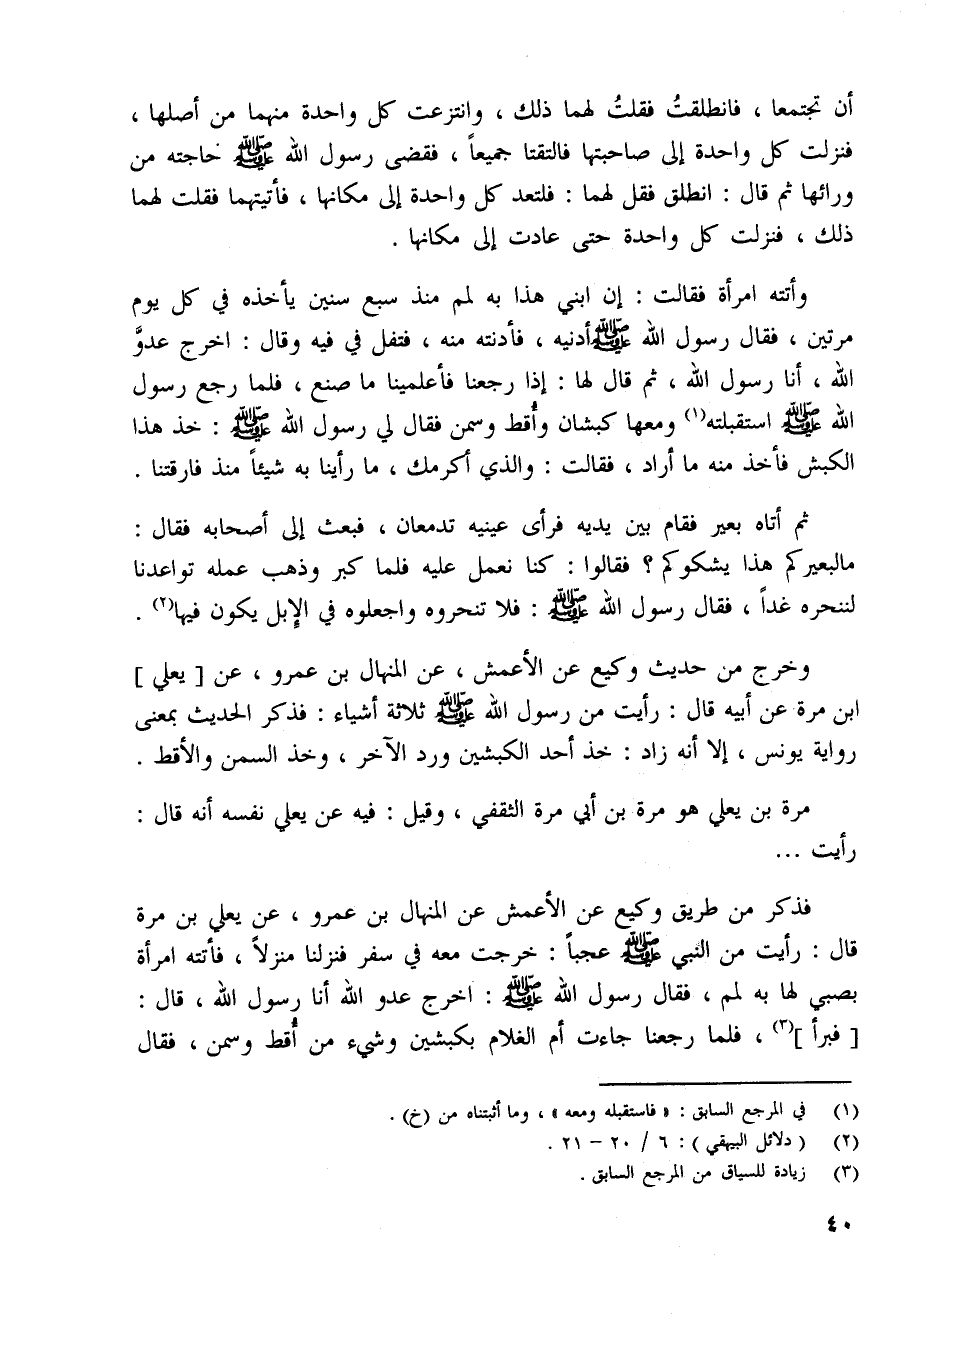 أن تجتمعا ، فانطلقتُ فقلتُ لهما ذلك ، وانتزعت كل واحدة منهما من أصلها ،
فنزلت كل واحدة إلى صاحبتها فالتقتا جميعاً ، فقضى رسول الله ﷺ حاجته من
ورائها ثم قال : انطلق فقل لهما : فلتعد كل واحدة إلى مكانها ، فأتيتهما فقلت لهما
ذلك ، فنزلت كل واحدة حتى عادت إلى مكانها .
وأتته امرأة فقالت : إن ابني هذا به لمم منذ سبع سنين يأخذه في كل يوم
مرتين ، فقال رسول الله ﷺ أدنيه ، فأدنته منه ، فتفل في فيه وقال : اخرج عدوَّ
الله ، أنا رسول الله ، ثم قال لها : إذا رجعنا فأعلمينا ما صنع ، فلما رجع رسول
الله ﷺ استقبلته(١) ومعها كبشان وأُقط وسمن فقال لي رسول الله ﷺ : خذ هذا
الكبش فأخذ منه ما أراد ، فقالت : والذي أكرمك ، ما رأينا به شيئاً منذ فارقتنا .
ثم أتاه بعير فقام بين يديه فرأى عينيه تدمعان ، فبعث إلى أصحابه فقال :
مالبعيركم هذا يشكوكم ؟ فقالوا : كنا نعمل عليه فلما كبر وذهب عمله تواعدنا
لننحره غداً ، فقال رسول الله ﷺ : فلا تنحروه واجعلوه في الإبل يكون فيها(٢) .
وخرج من حديث وكيع عن الأعمش ، عن المنهال بن عمرو ، عن [ يعلي ]
ابن مرة عن أبيه قال : رأيت من رسول الله ﷺ ثلاثة أشياء : فذكر الحديث بمعنى
رواية يونس ، إلا أنه زاد : خذ أحد الكبشين ورد الآخر ، وخذ السمن والأقط .
مرة بن يعلي هو مرة بن أبي مرة الثقفي ، وقيل : فيه عن يعلي نفسه أنه قال :
رأيت ...
فذكر من طريق وكيع عن الأعمش عن المنهال بن عمرو ، عن يعلي بن مرة
قال : رأيت من النبي ﷺ عجباً : خرجت معه في سفر فنزلنا منزلاً ، فأتته امرأة
بصبي لها به لمم ، فقال رسول الله ﷺ : اخرج عدو الله أنا رسول الله ، قال :
[ فبرأ ](٣) ، فلما رجعنا جاءت أم الغلام بكبشين وشيء من أُقط وسمن ، فقال
(١) في المرجع السابق : « فاستقبله ومعه » ، وما أثبتناه من (خ) .
(٢) ( دلائل البيهقي ) : ٦ / ٢٠ – ٢١ .
(٣) زيادة للسياق من المرجع السابق .
٤٠